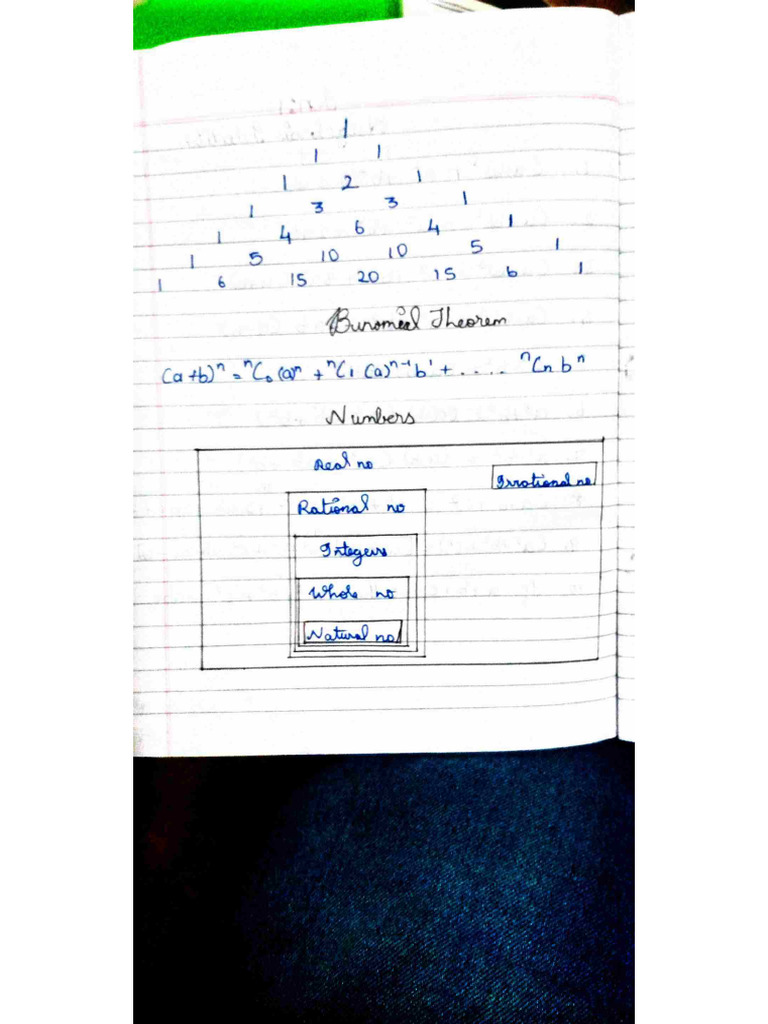 1
1 1
1 2 1
1 3 3 1
1 4 6 4 1
1 5 10 10 5 1
1 6 15 20 15 6 1
Theorem
(a+b)ⁿ = ⁿC₀ (a)ⁿ + ⁿC₁ (a)ⁿ⁻¹ b¹ + .... ⁿCn bⁿ
Numbers
Real no
Irrational no
Rational no
Integers
Whole no
Natural no